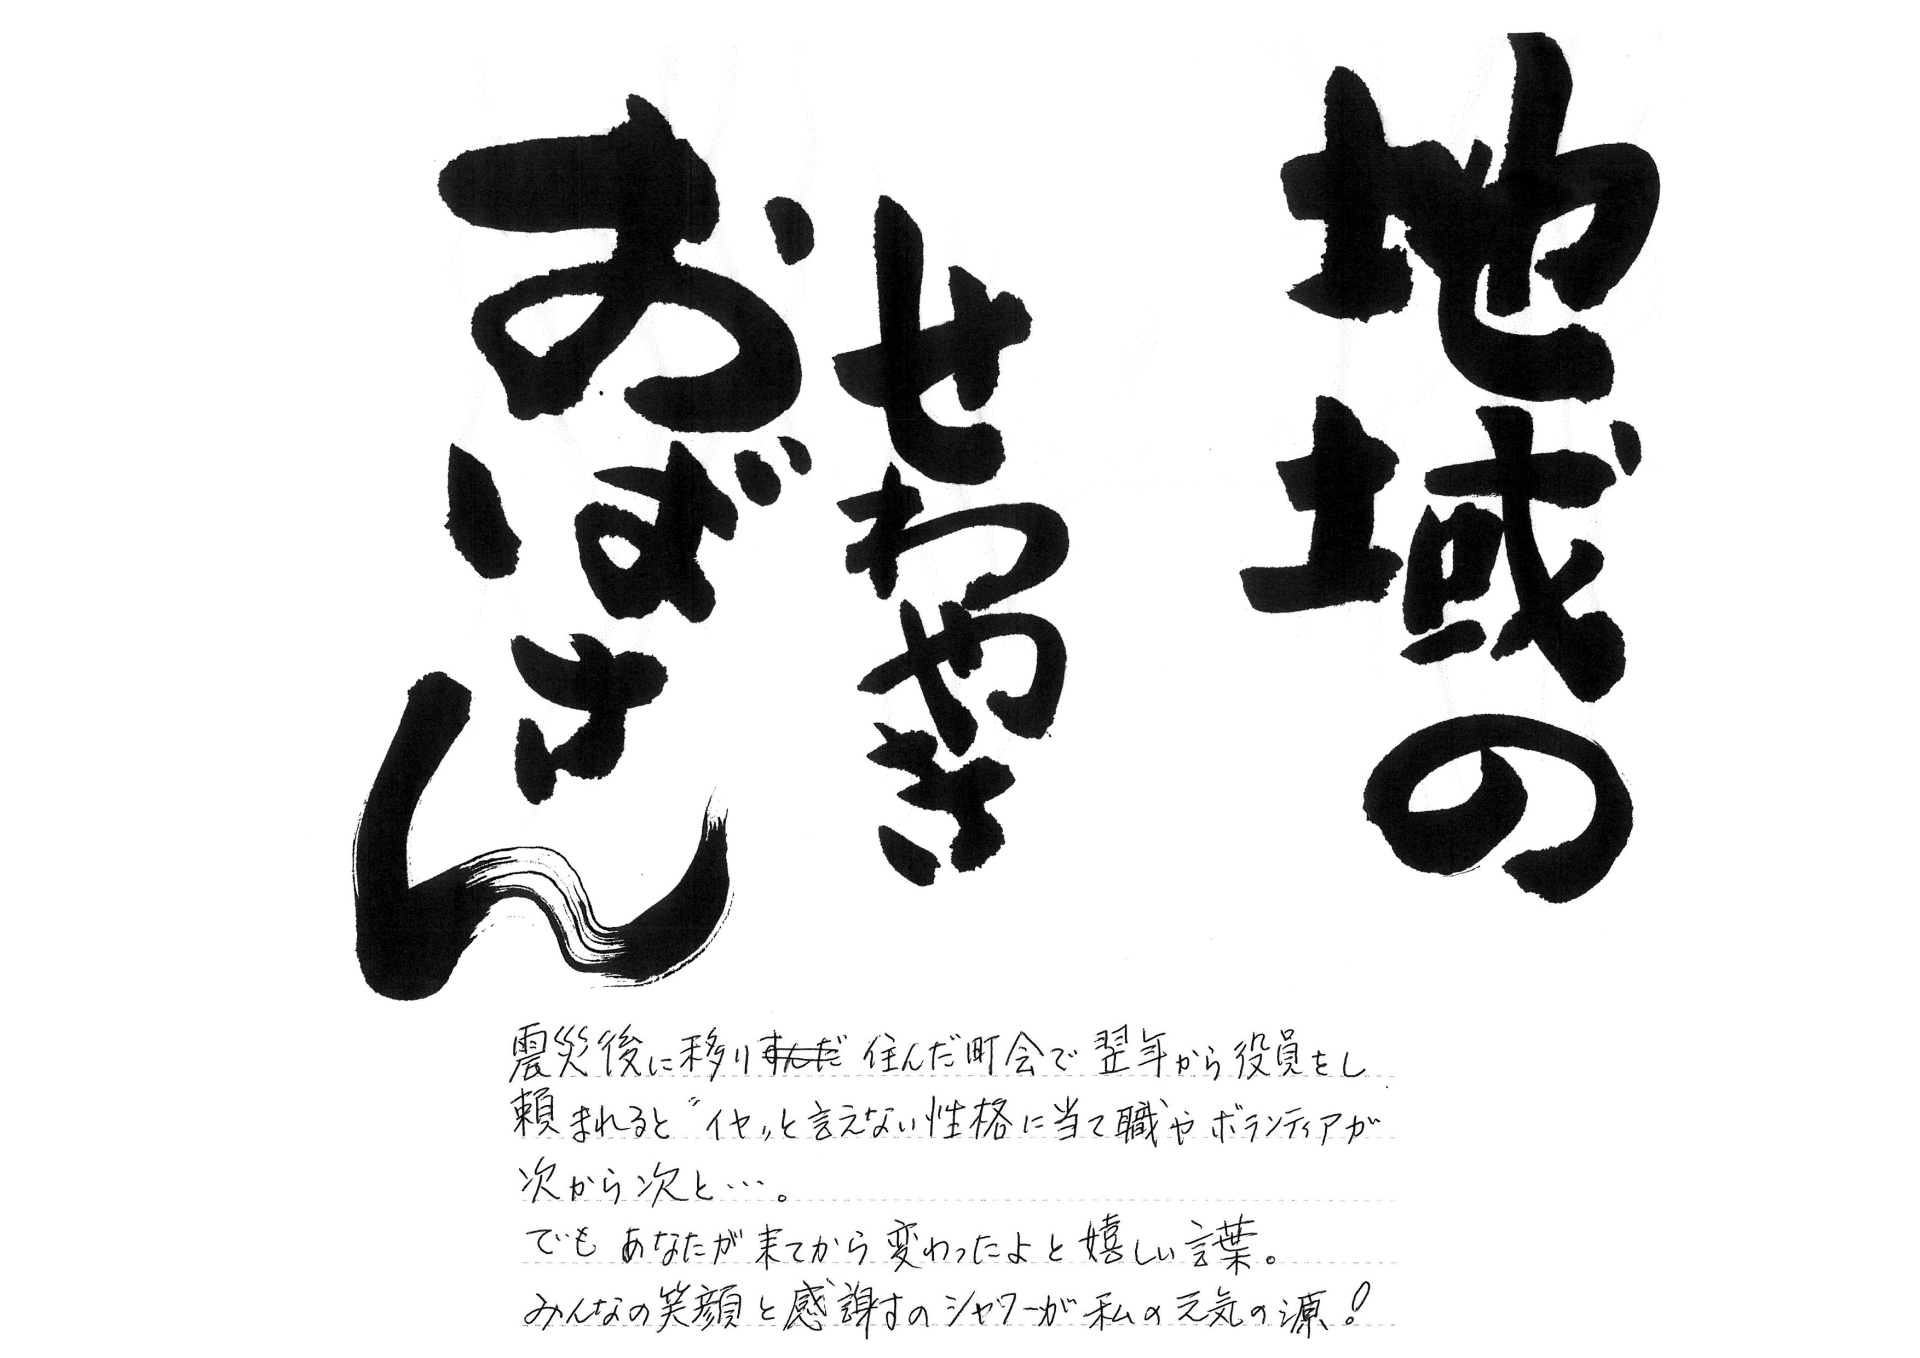 地域の
せわやき
おばさん
震災後に移り住んだ町会で翌年から役員をし
頼まれると〝イヤ〟と言えない性格に当て職やボランティアが
次から次と…。
でもあなたが来てから変わったよと嬉しい言葉。
みんなの笑顔と感謝のシャワーが私の元気の源！